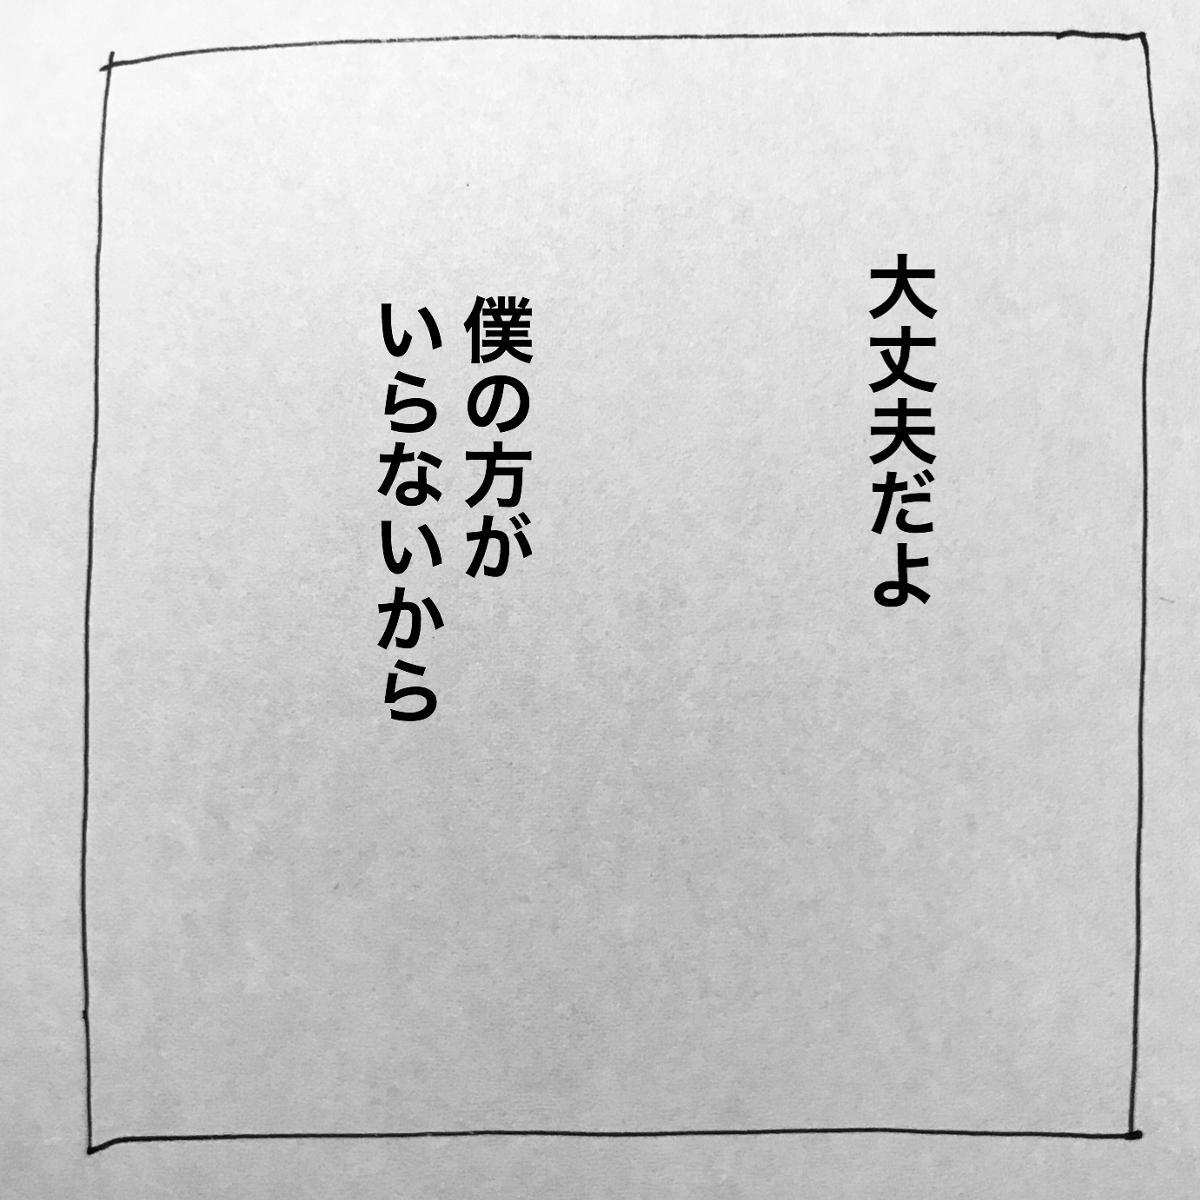 大丈夫だよ
僕の方が
いらないから